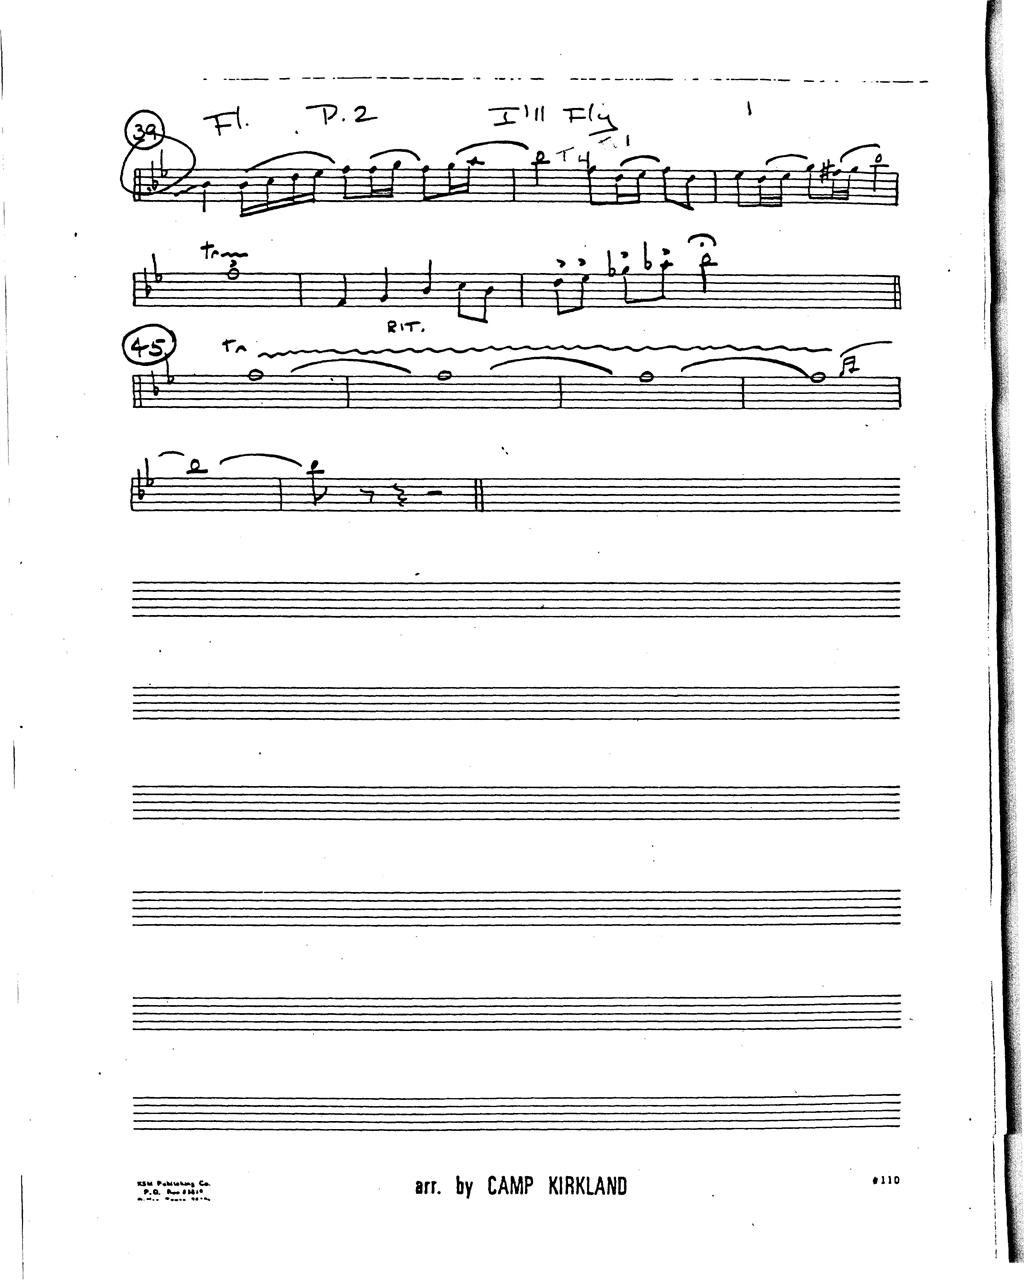 Fl. P.2 I'll Fly
39
tr
RIT.
45
tr
KSM Publishing Co.
P.O. Box
arr. by CAMP KIRKLAND
#110